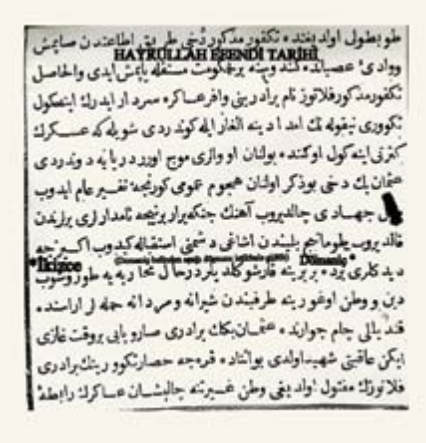 طوبطول اولديغنده تكفور مذكور دخى طريق اطاعتدن صايمش
HAYRULLAH EFENDİ TARİHİ
ووادئ عصيانده كندوسنه بر حكومت مستقله يايمش ايدى والحاصل
تكفور مذكور فلاتوز نام برادرينى وافر عساكره سردار ايدرك اينهكول
تكوورى نيقوله نك امدادينه الغار ايله كوندردى شويله كه عسكرك
كثرتى اينه كول اوكنده بولنان اووازى موج اورر دريايه دوندردى
عثمان بك دخى بو ذكر اولنان هجوم عمومى كورنجه نفير عام ايدوب
جهادى چالديروب آهنك جنكه برابر نيجه نامدارلرى يرلرندن
قالديروب طومانيج بلندن اشاغى دشمنى استقباله كيدوب اكزجه
*İkizce
Domaniç*
ديدكلرى يرده بربرينه قارشو كلديلر درحال محاربه يه طورشوب
دين و وطن اوغورينه طرفيندن شيرانه و مردانه حمله لر اراسنده
قندبالى چام جوارنده عثمان بكك برادرى صارويانى بر وقت غازى
ايكن عاقبتى شهيد اولدى بو اثناده قره جه حصار تكوورينك برادرى
فلاتوزك مقتول اولديغى وطن غيرتنه چاليشان عساكرك رابطهٔ